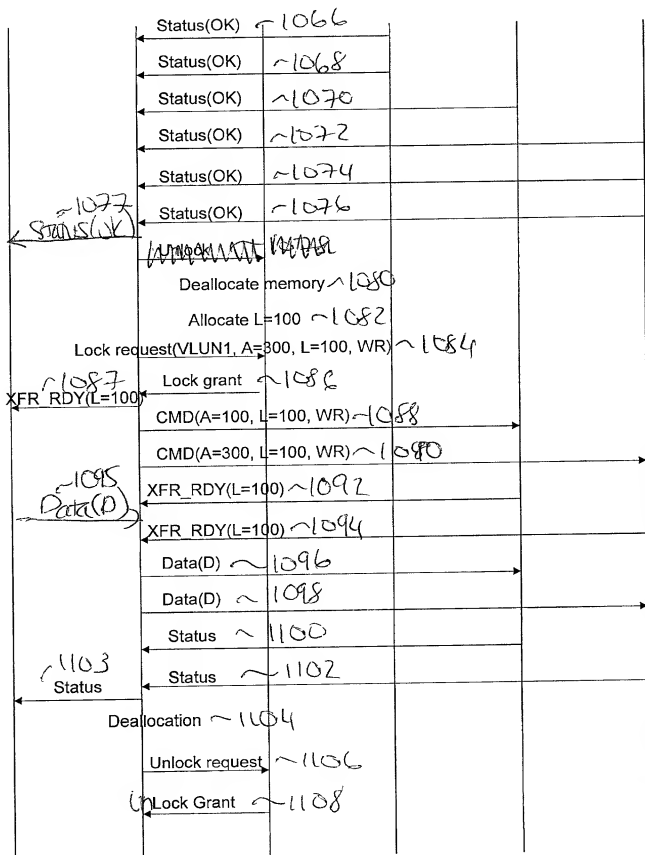 Status(OK) ~1066
Status(OK) ~1068
Status(OK) ~1070
Status(OK) ~1072
Status(OK) ~1074
~1077
Status(OK) ~1076
Status(OK)
Deallocate memory ~1080
Allocate L=100 ~1082
Lock request(VLUN1, A=300, L=100, WR) ~1084
~1087
Lock grant ~1086
XFR_RDY(L=100)
CMD(A=100, L=100, WR) ~1088
CMD(A=300, L=100, WR) ~1090
~1095
XFR_RDY(L=100) ~1092
Data(D)
XFR_RDY(L=100) ~1094
Data(D) ~1096
Data(D) ~1098
Status ~1100
~1103
Status
Status ~1102
Deallocation ~1104
Unlock request ~1106
UnLock Grant ~1108